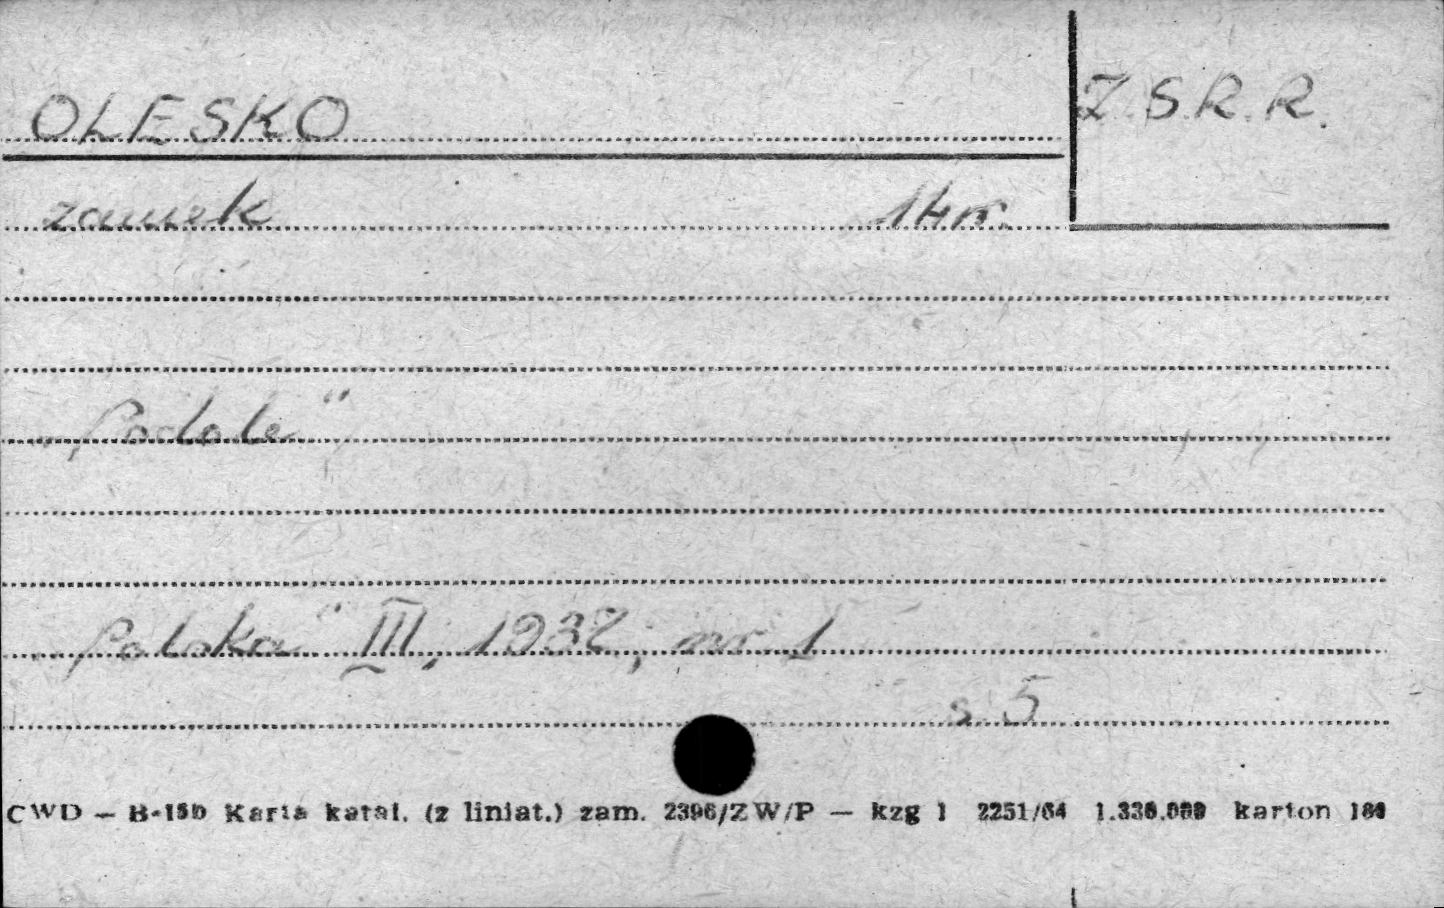 OLESKO
Z.S.R.R.
zamek 14 w.
„Podole"
„Polska" III, 1937, nr 1
s. 5
CWD — B-15b Karta katal. (z liniat.) zam. 2396/ZW/P — kzg 1 2251/64 1.330.000 karton 180